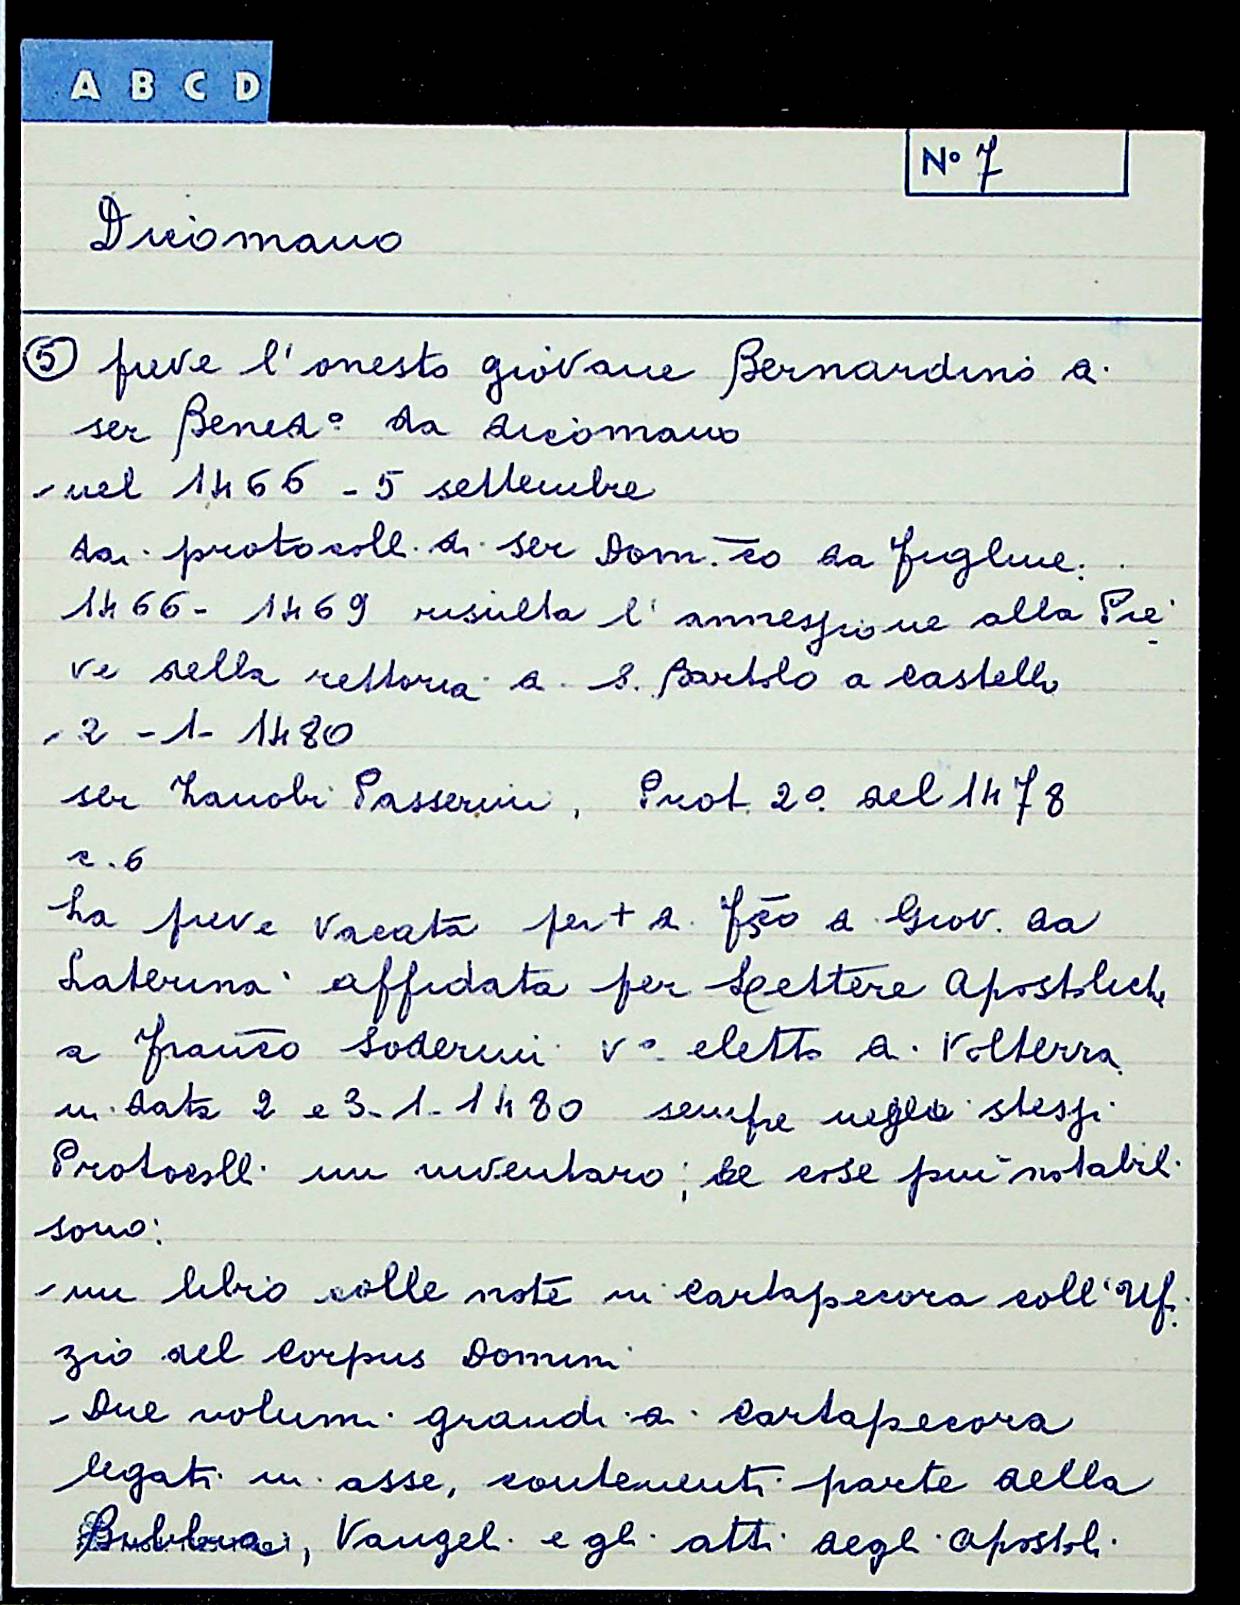 A B C D
N° 7
Dicomano
⑤ pieve l'onesto giovane Bernardino di
ser Bened° da Dicomano
- nel 1466 - 5 settembre
dai protocolli di ser Dom.co da Figline:
1466 - 1469 risulta l'annessione alla Pie
ve della rettoria di S. Bartolo a Castello
- 2 - 1 - 1480
ser Zanobi Passerini, Prot. 2° del 1478
c. 6
La pieve vacata per + di Fco di Giov. da
Laterina affidata per Lettere Apostoliche
a Franco Soderini V° eletto di Volterra
in data 2 e 3-1-1480 sempre negli stessi
Protocolli un inventaro; le cose più notabili
sono:
- un libro colle note in cartapecora coll'Uf.
zio del Corpus Domini
- Due volumi grandi di cartapecora
legati in asse, contenenti parte della
Bibbia, Vangeli e gli atti degli Apostoli